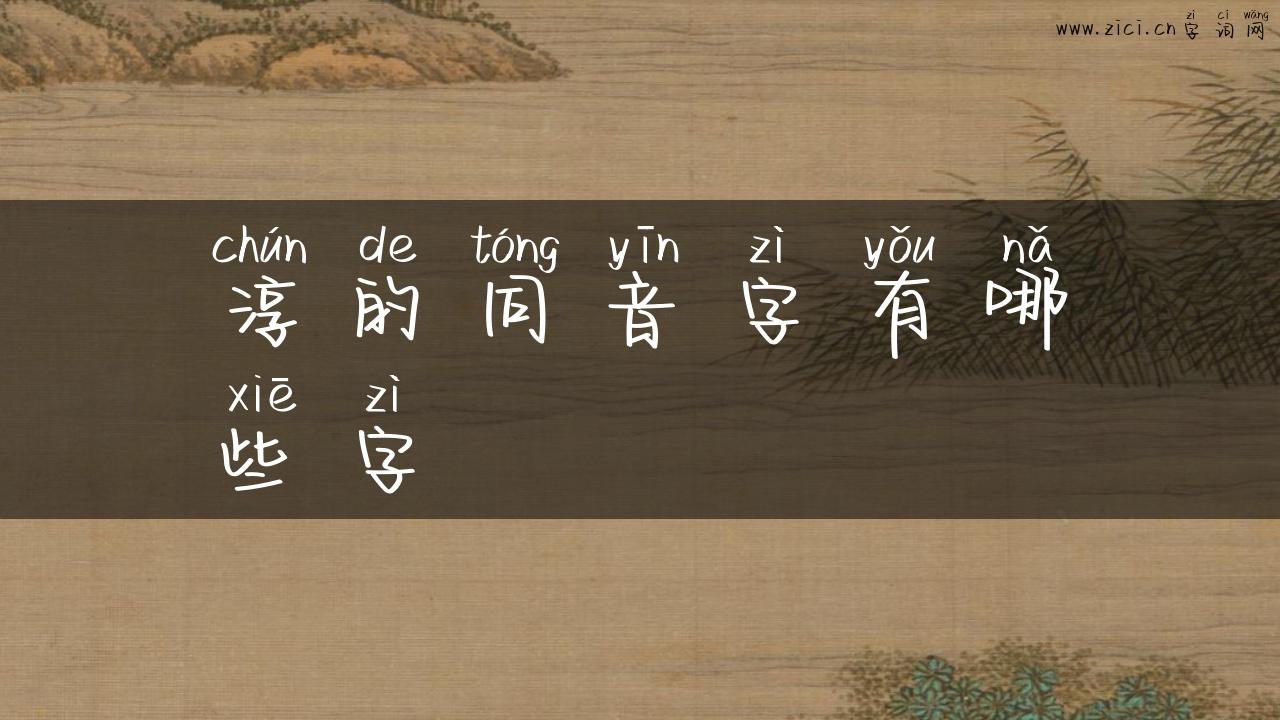 zì cí wǎng
www.zici.cn 字词网
chún de tóng yīn zì yǒu nǎ
淳的同音字有哪
xiē zì
些字